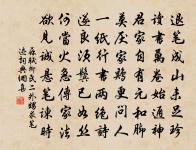 退笔成山未足珍
讀書萬卷始通神
君家自有元和脚
莫厌家雞更問人
一紙行書兩絕詩
遂良須鬢已如絲
何當火急傳家法
欲見誠懸筆諫時
柳氏二外甥求筆